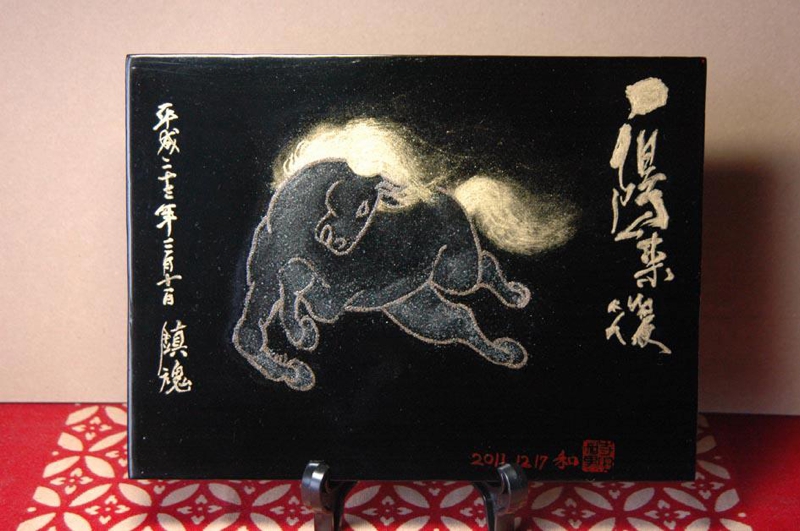 一陽来復
平成二十三年三月十一日 鎮魂
2013.12.17 和